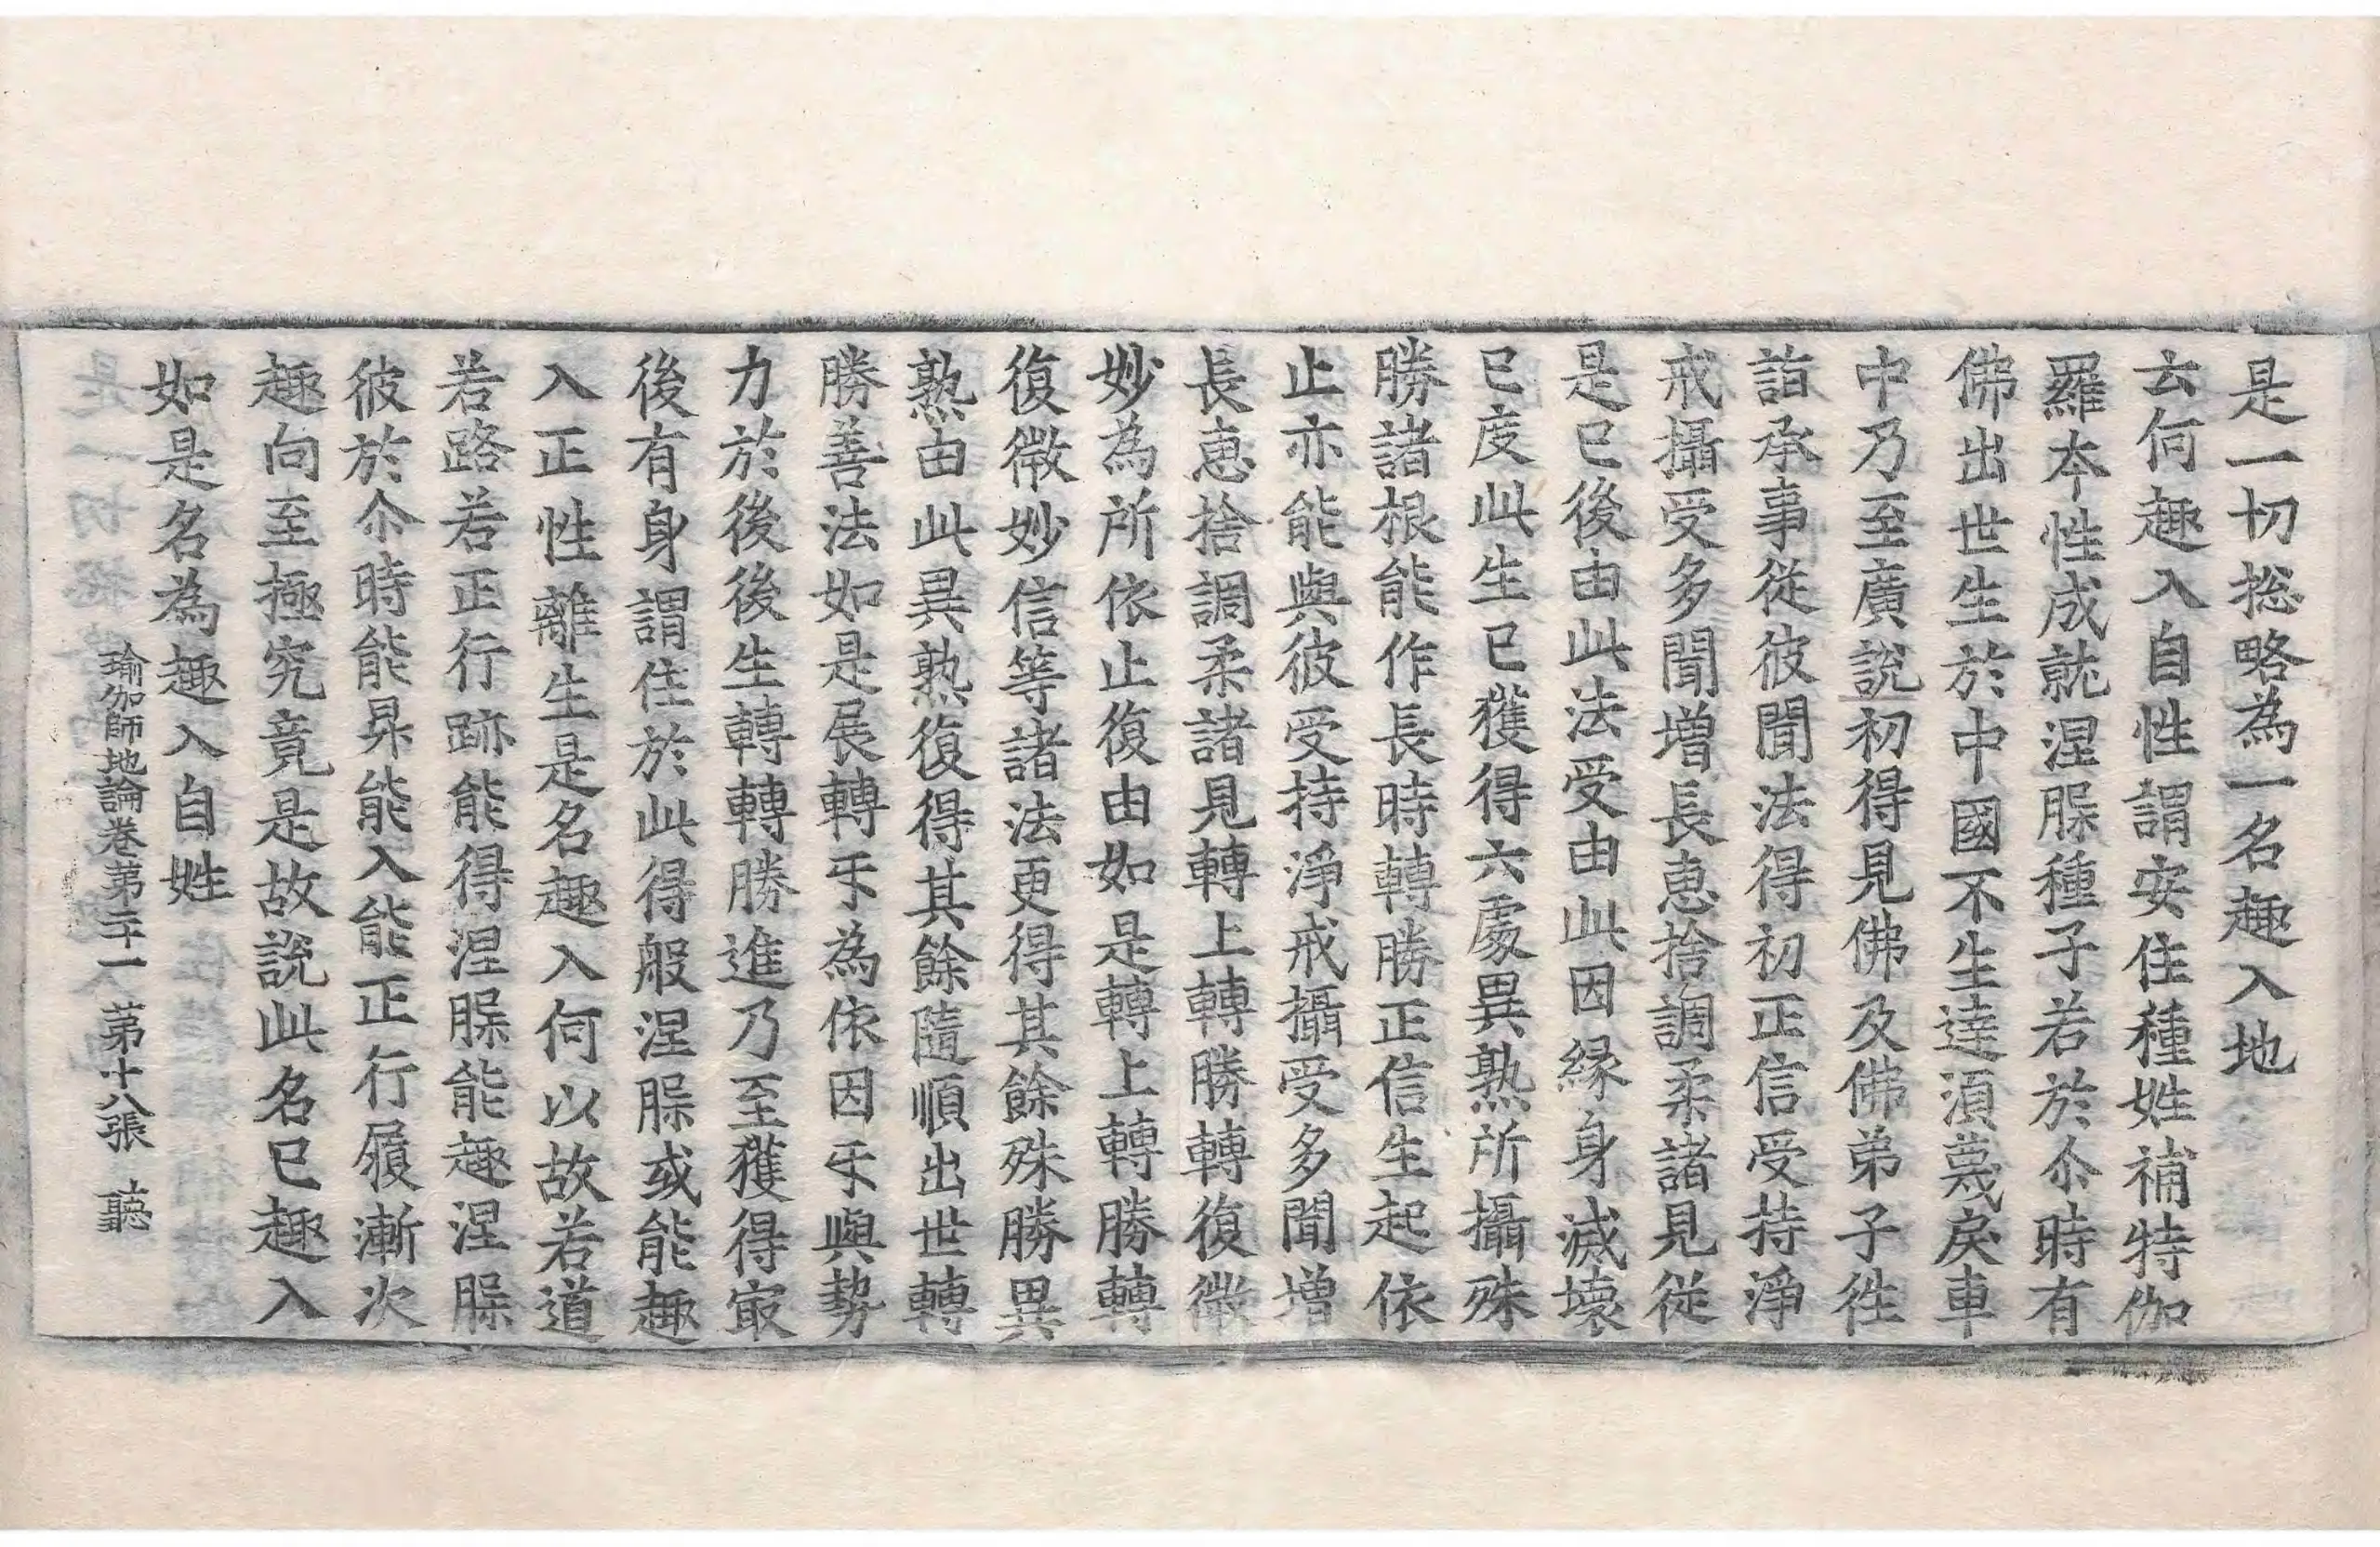 是一切揔略為一名趣入地
云何趣入自性謂安住種姓補特伽
羅夲性成就涅槃種子若於尒時有
佛出世生於中國不生達湏蔑戾車
中乃至廣說初得見佛及佛弟子徃
詣承事從彼聞法得初正信受持淨
戒攝受多聞增長惠捨調柔諸見從
是已後由此法受由此因縁身滅壞
已度此生已獲得六處異熟所攝殊
勝諸根能作長時轉勝正信生起依
止亦能與彼受持淨戒攝受多聞增
長惠捨調柔諸見轉上轉勝轉復微
妙為所依止復由如是轉上轉勝轉
復微妙信等諸法更得其餘殊勝異
熟由此異熟復得其餘隨順出世轉
勝善法如是展轉㸦為依因㸦與勢
力於後後生轉轉勝進乃至獲得㝡
後有身謂住於此得般涅槃或能趣
入正性離生是名趣入何以故若道
若路若正行跡能得涅槃能趣涅槃
彼於尒時能昇能入能正行履漸次
趣向至極究竟是故說此名已趣入
如是名為趣入自姓
瑜伽師地論卷第二十一 第十八張 聽